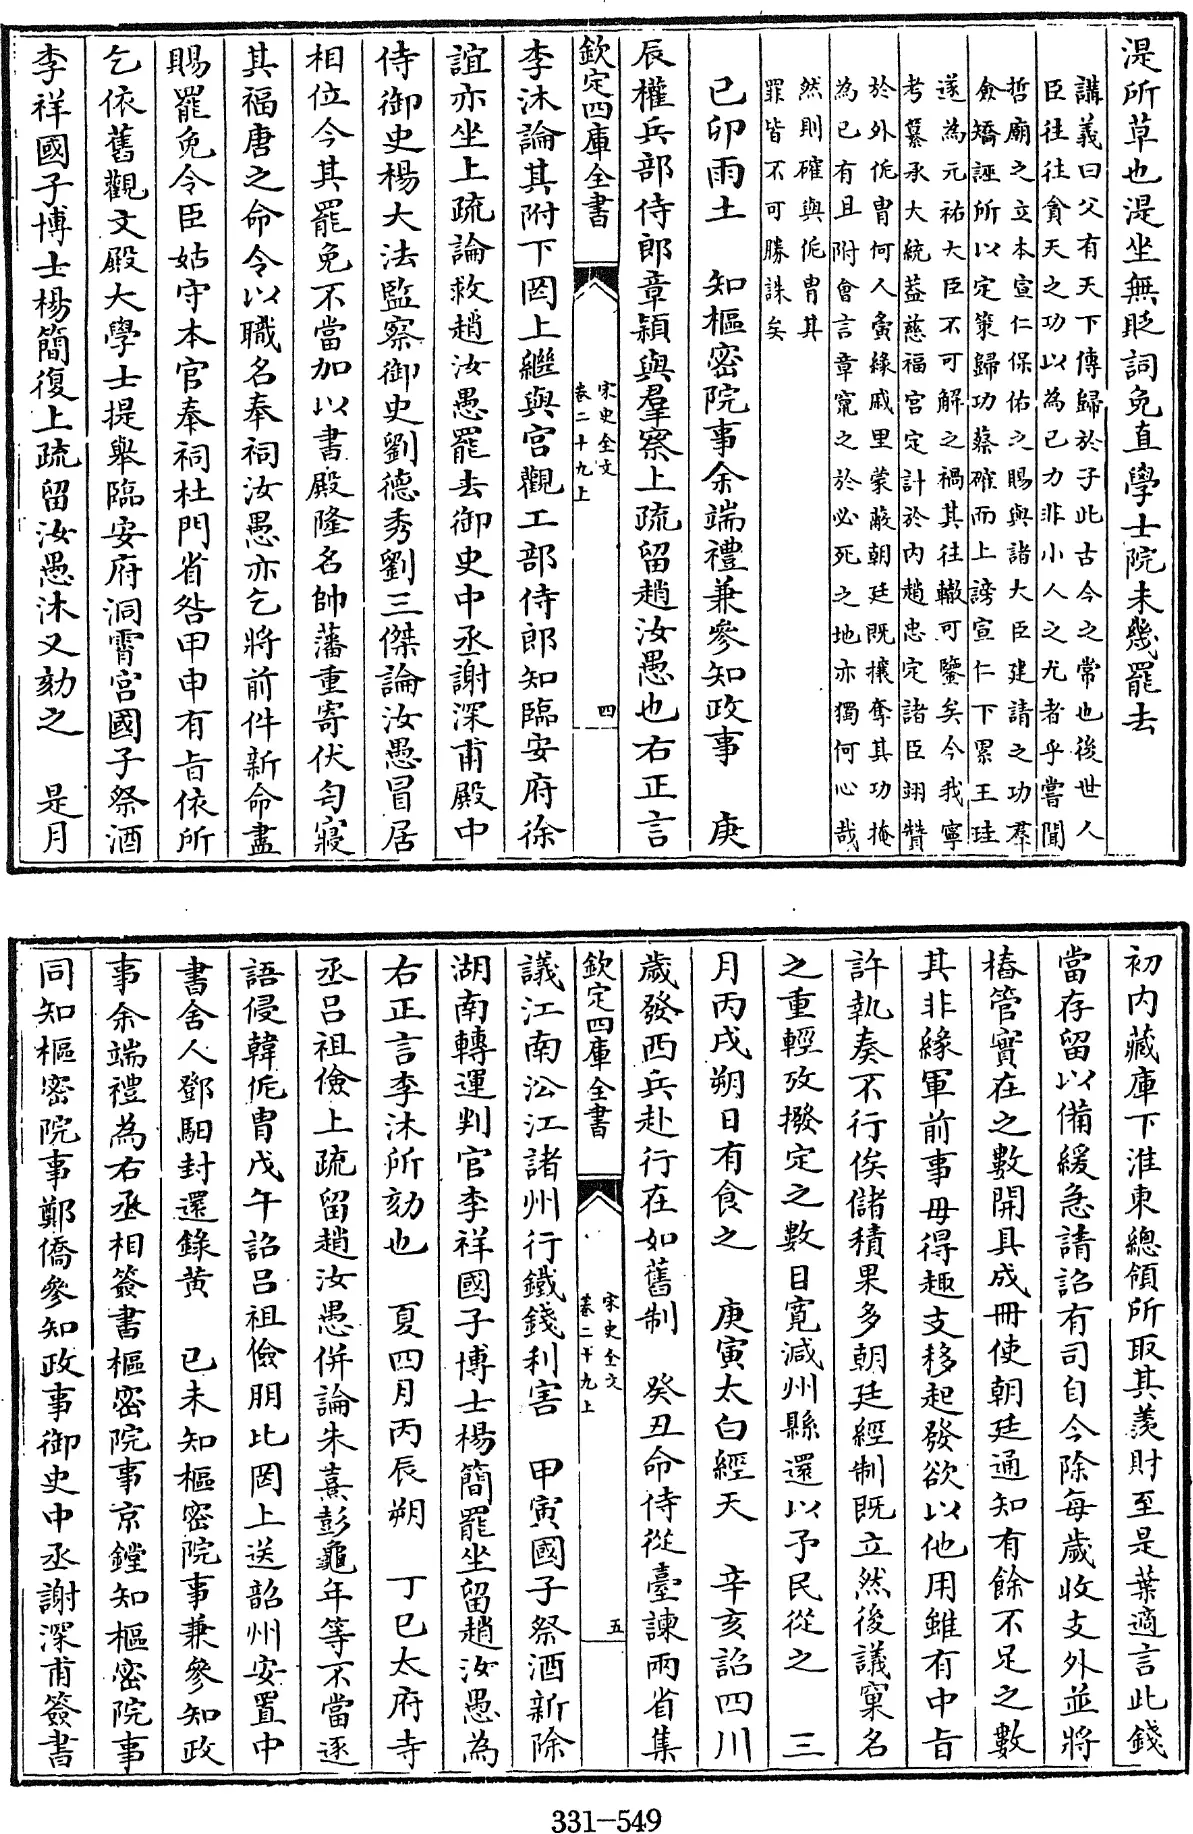 湜所草也湜坐無貶詞免直學士院未幾罷去
講義曰父有天下傳歸於子此古今之常也後世人
臣往往貪天之功以為已力非小人之尤者乎嘗聞
哲廟之立本宣仁保佑之賜與諸大臣建請之功羣
儉矯誣所以定策歸功蔡確而上謗宣仁下累王珪
遂為元祐大臣不可解之禍其往轍可鑒矣今我寧
考纂承大統葢慈福宮定計於内趙忠定諸臣翊賛
於外侂胄何人夤緣戚里蒙蔽朝廷既攘奪其功掩
為已有且附㑹言章竄之於必死之地亦獨何心哉
然則確與侂胄其
罪皆不可勝誅矣
已卯雨土　知樞密院事余端禮兼參知政事　庚
辰權兵部侍郎章頴與羣察上疏留趙汝愚也右正言
欽定四庫全書
宋史全文
卷二十九上
四
李沐論其附下罔上繼與宮觀工部侍郎知臨安府徐
誼亦坐上疏論救趙汝愚罷去御史中丞謝深甫殿中
侍御史楊大法監察御史劉德秀劉三傑論汝愚冒居
相位今其罷免不當加以書殿隆名帥藩重寄伏匄寢
其福唐之命令以職名奉祠汝愚亦乞將前件新命盡
賜罷免令臣姑守本官奉祠杜門省咎甲申有㫖依所
乞依舊觀文殿大學士提舉臨安府洞霄宮國子祭酒
李祥國子博士楊簡復上疏留汝愚沐又劾之　是月
初内藏庫下淮東總領所取其羨財至是葉適言此錢
當存留以備緩急請詔有司自今除每歲收支外並將
樁管實在之數開具成冊使朝廷通知有餘不足之數
其非緣軍前事毋得趣支移起發欲以他用雖有中㫖
許執奏不行俟儲積果多朝廷經制既立然後議窠名
之重輕攷撥定之數目寛減州縣還以予民從之　三
月丙戌朔日有食之　庚寅太白經天　辛亥詔四川
歲發西兵赴行在如舊制　癸丑命侍從臺諫兩省集
欽定四庫全書
宋史全文
卷二十九上
五
議江南㳂江諸州行鐵錢利害　甲寅國子祭酒新除
湖南轉運判官李祥國子博士楊簡罷坐留趙汝愚為
右正言李沐所劾也　夏四月丙辰朔　丁巳太府寺
丞吕祖儉上疏留趙汝愚併論朱熹彭龜年等不當逐
語侵韓侂胄戊午詔吕祖儉朋比罔上送韶州安置中
書舍人鄧馹封還錄黄　已未知樞密院事兼參知政
事余端禮為右丞相簽書樞密院事京鏜知樞密院事
同知樞密院事鄭僑參知政事御史中丞謝深甫簽書
331—549